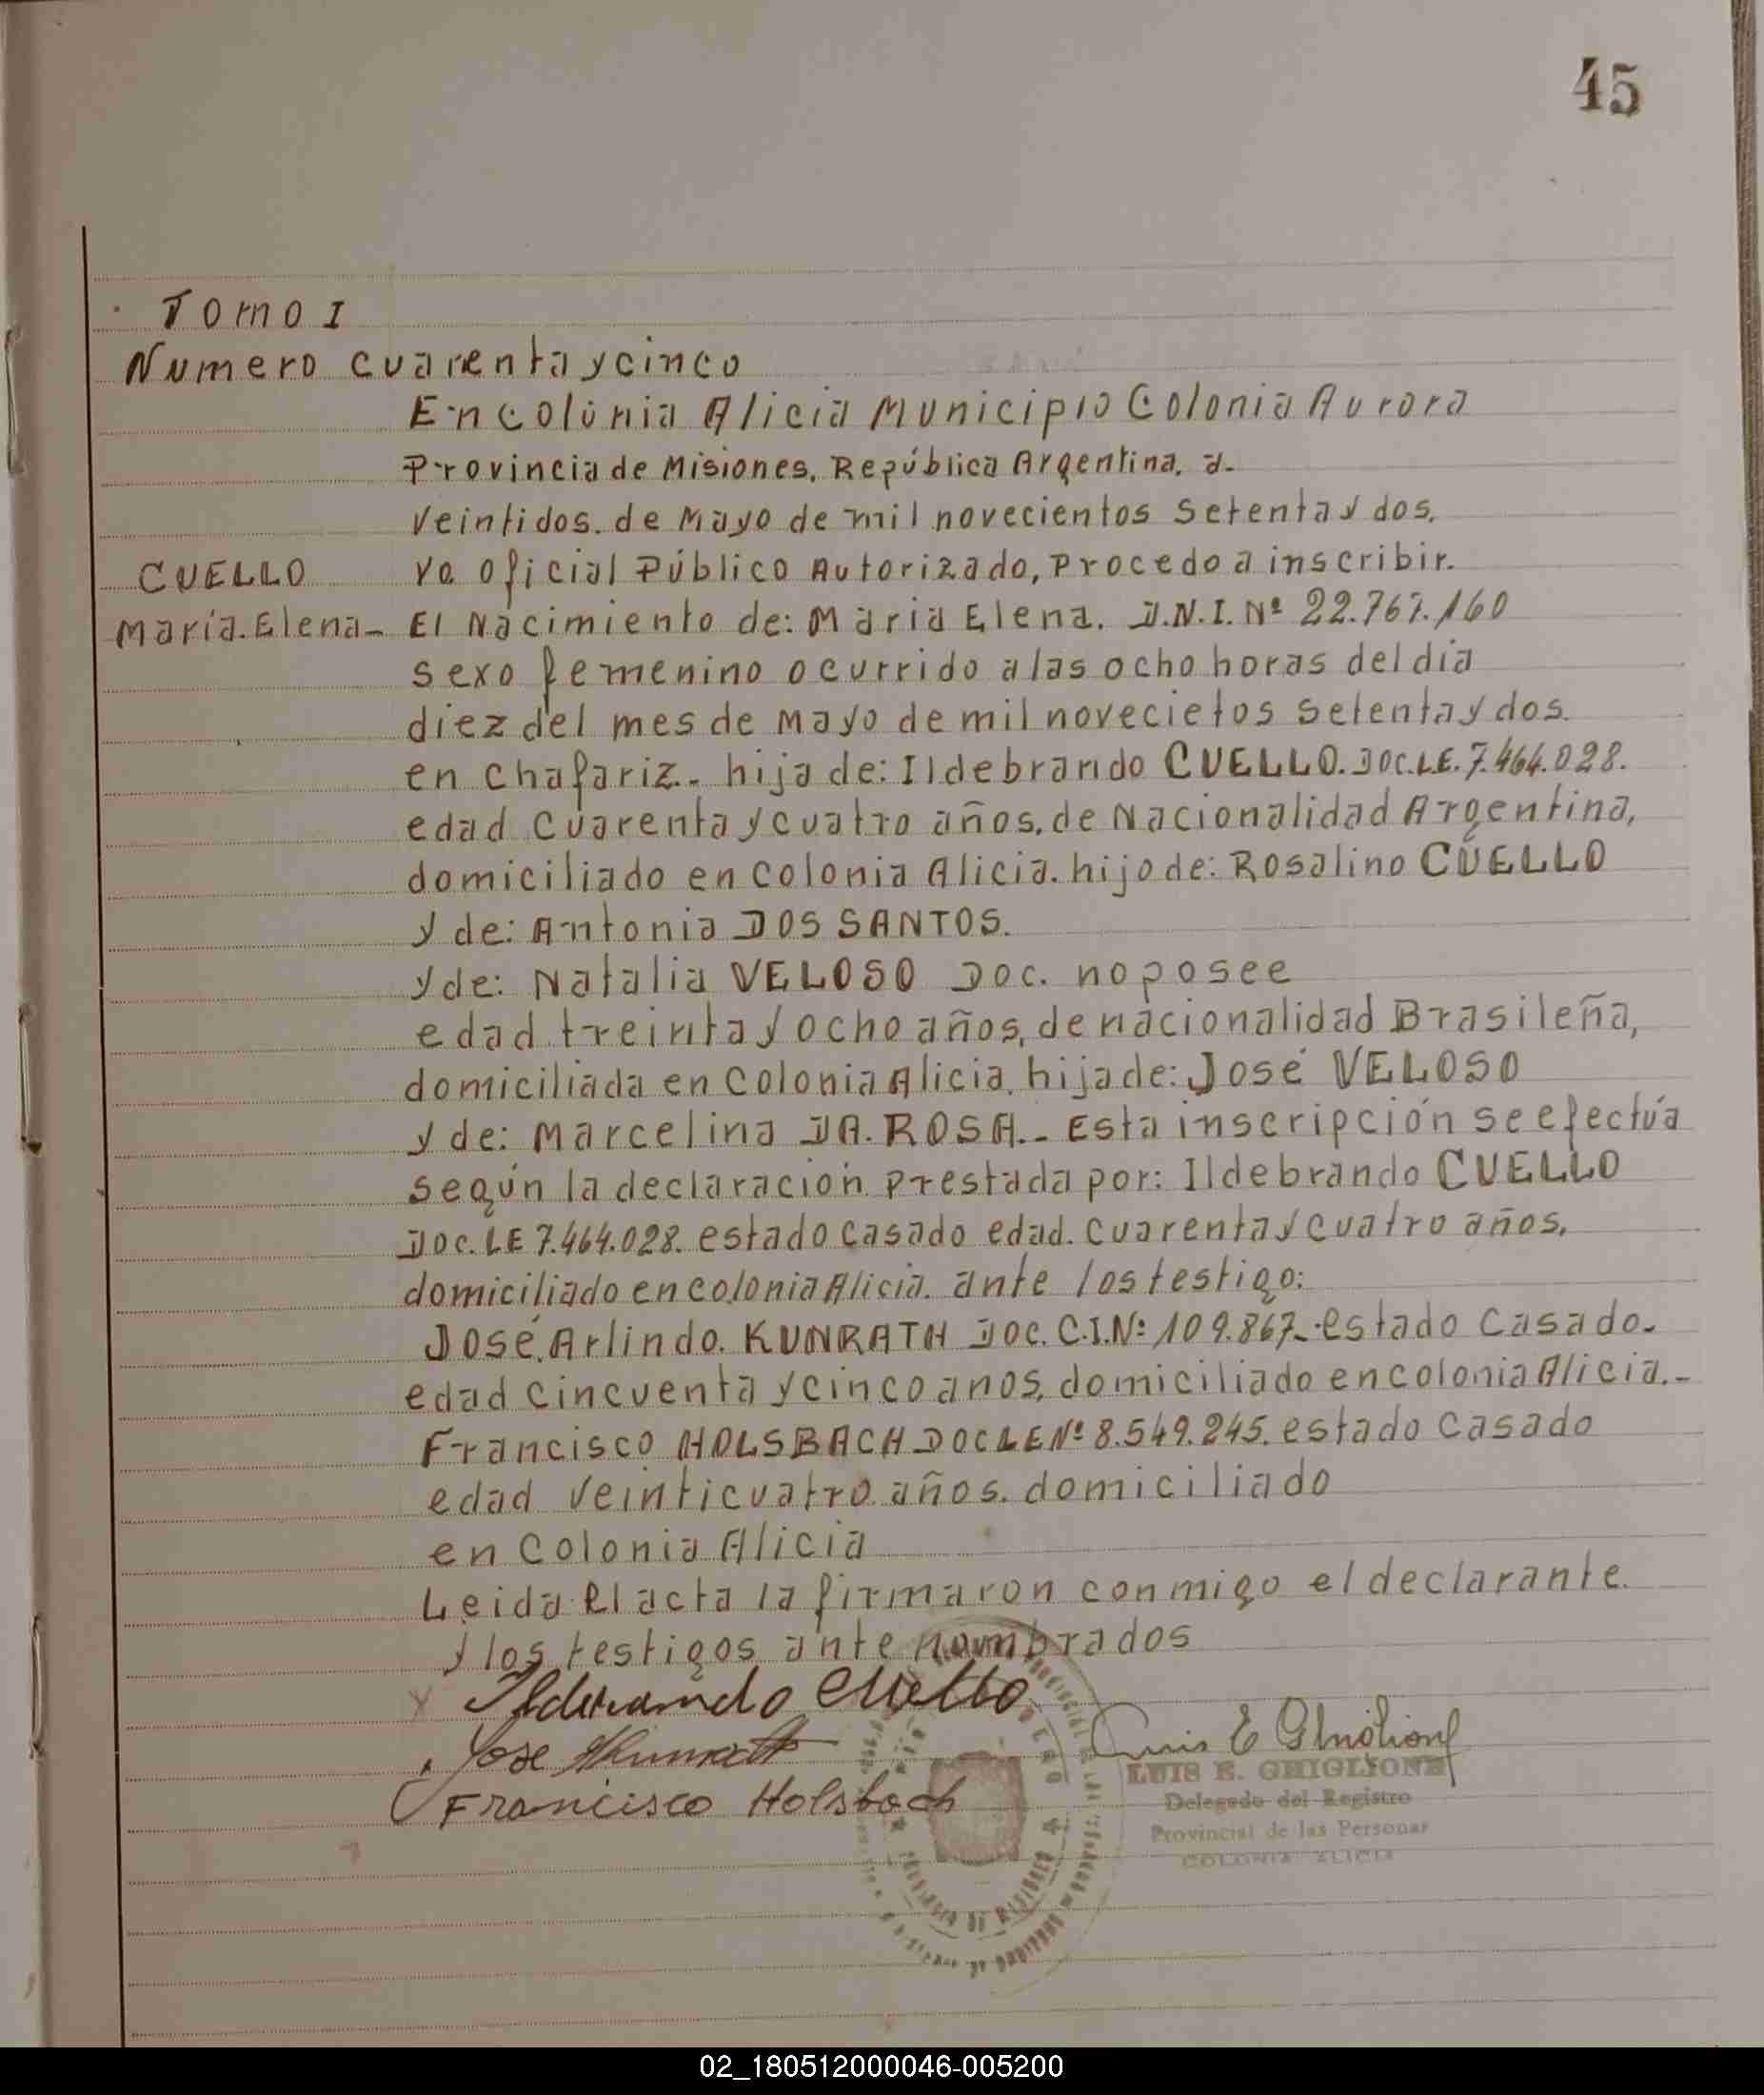 45
Tomo I
Numero cuarenta y cinco
En Colonia Alicia Municipio Colonia Aurora
Provincia de Misiones, República Argentina, a-
Veintidos de Mayo de mil novecientos setenta y dos.
CUELLO Yo Oficial Público Autorizado, Procedo a inscribir.
María Elena- El Nacimiento de: Maria Elena. D.N.I. Nº 22.767.160
sexo femenino ocurrido a las ocho horas del dia
diez del mes de Mayo de mil novecietos setenta y dos.
en Chafariz.- hija de: Ildebrando CUELLO. DOC.L.E. 7.464.028.
edad cuarenta y cuatro años, de Nacionalidad Argentina,
domiciliado en Colonia Alicia. hijo de: Rosalino CUELLO
y de: Antonia DOS SANTOS.
y de: Natalia VELOSO Doc. no posee
edad treinta y ocho años, de nacionalidad Brasileña,
domiciliada en Colonia Alicia. hija de: José VELOSO
y de: Marcelina DA. ROSA.- Esta inscripción se efectúa
según la declaración prestada por: Ildebrando CUELLO
DOC. LE 7.464.028. estado casado edad. cuarenta y cuatro años,
domiciliado en colonia Alicia. ante los testigo:
José Arlindo. KUNRATH DOC. C.I.Nº 109.867.- estado casado.
edad cincuenta y cinco anos, domiciliado en colonia Alicia.-
Francisco HOLSBACH DOC LE Nº 8.549.245. estado casado
edad veinticuatro años. domiciliado
en Colonia Alicia
Leida el acta la firmaron conmigo el declarante.
y los testigos ante nombrados
x Ildebrando Cuello
Jose Kunrath
Luis E Ghiglione
LUIS E. GHIGLIONE
Francisco Holsbach
Delegado del Registro
Provincial de las Personas
COLONIA ALICIA
PROVINCIA DE MISIONES
02_180512000046-005200